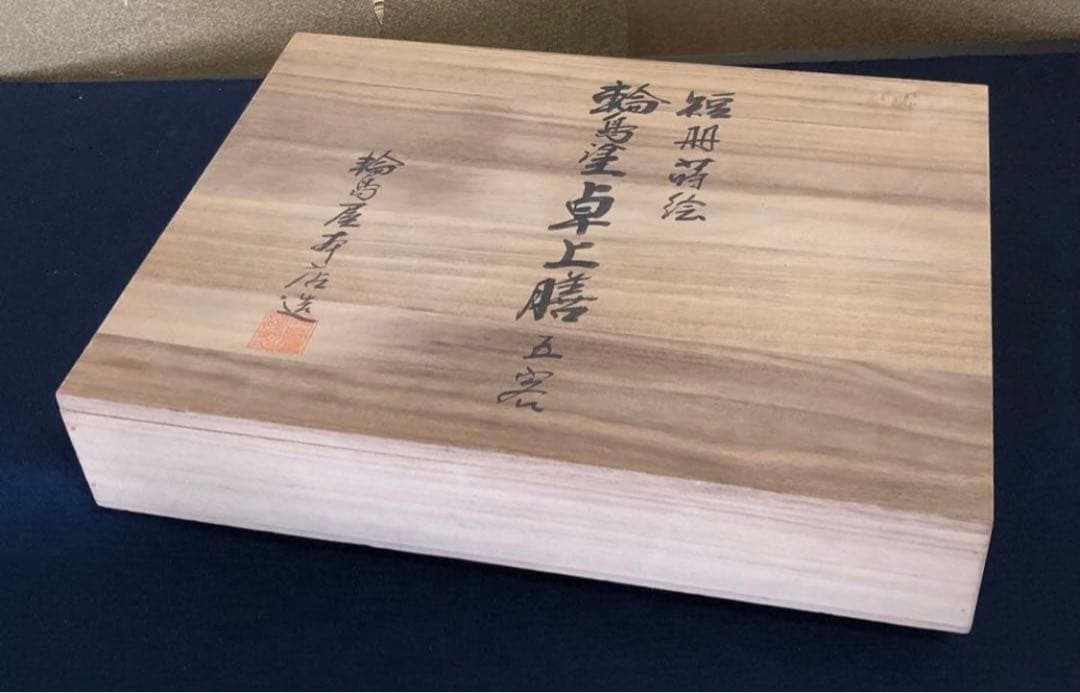 短冊蒔絵
輪島塗卓上膳五客
輪島屋本店造